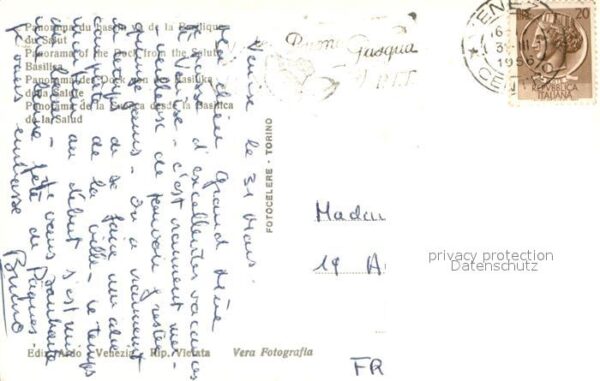 Panorama du bassin de la Basilique
du Salut
Panorama of the Dock from the Salute
Basilica
Panorama der Dock von der Basilika
della Salute
Panorama de la Darsena desde la Basilica
de la Salud
Buona Pasqua
VENEZIA
6-
31.III
1956
CENTRO
LIRE 20
REPUBBLICA
ITALIANA
Venise le 31 Mars.
Ma chère Grand Mère
Je passe d'excellentes vacances
à Venise - c'est vraiment mer-
veilleux de pouvoir y rester
quinze jours - On a vraiment
le temps de se faire une idée
complète de la ville - le temps
au début s'est mis
Je vous souhaite
fête de Pâques
vous embrasse
Bruno
FOTOCELERE - TORINO
Madam
19 A
FR
privacy protection
Datenschutz
Ediz. Ardo Venezia - Rip. Vietata Vera Fotografia